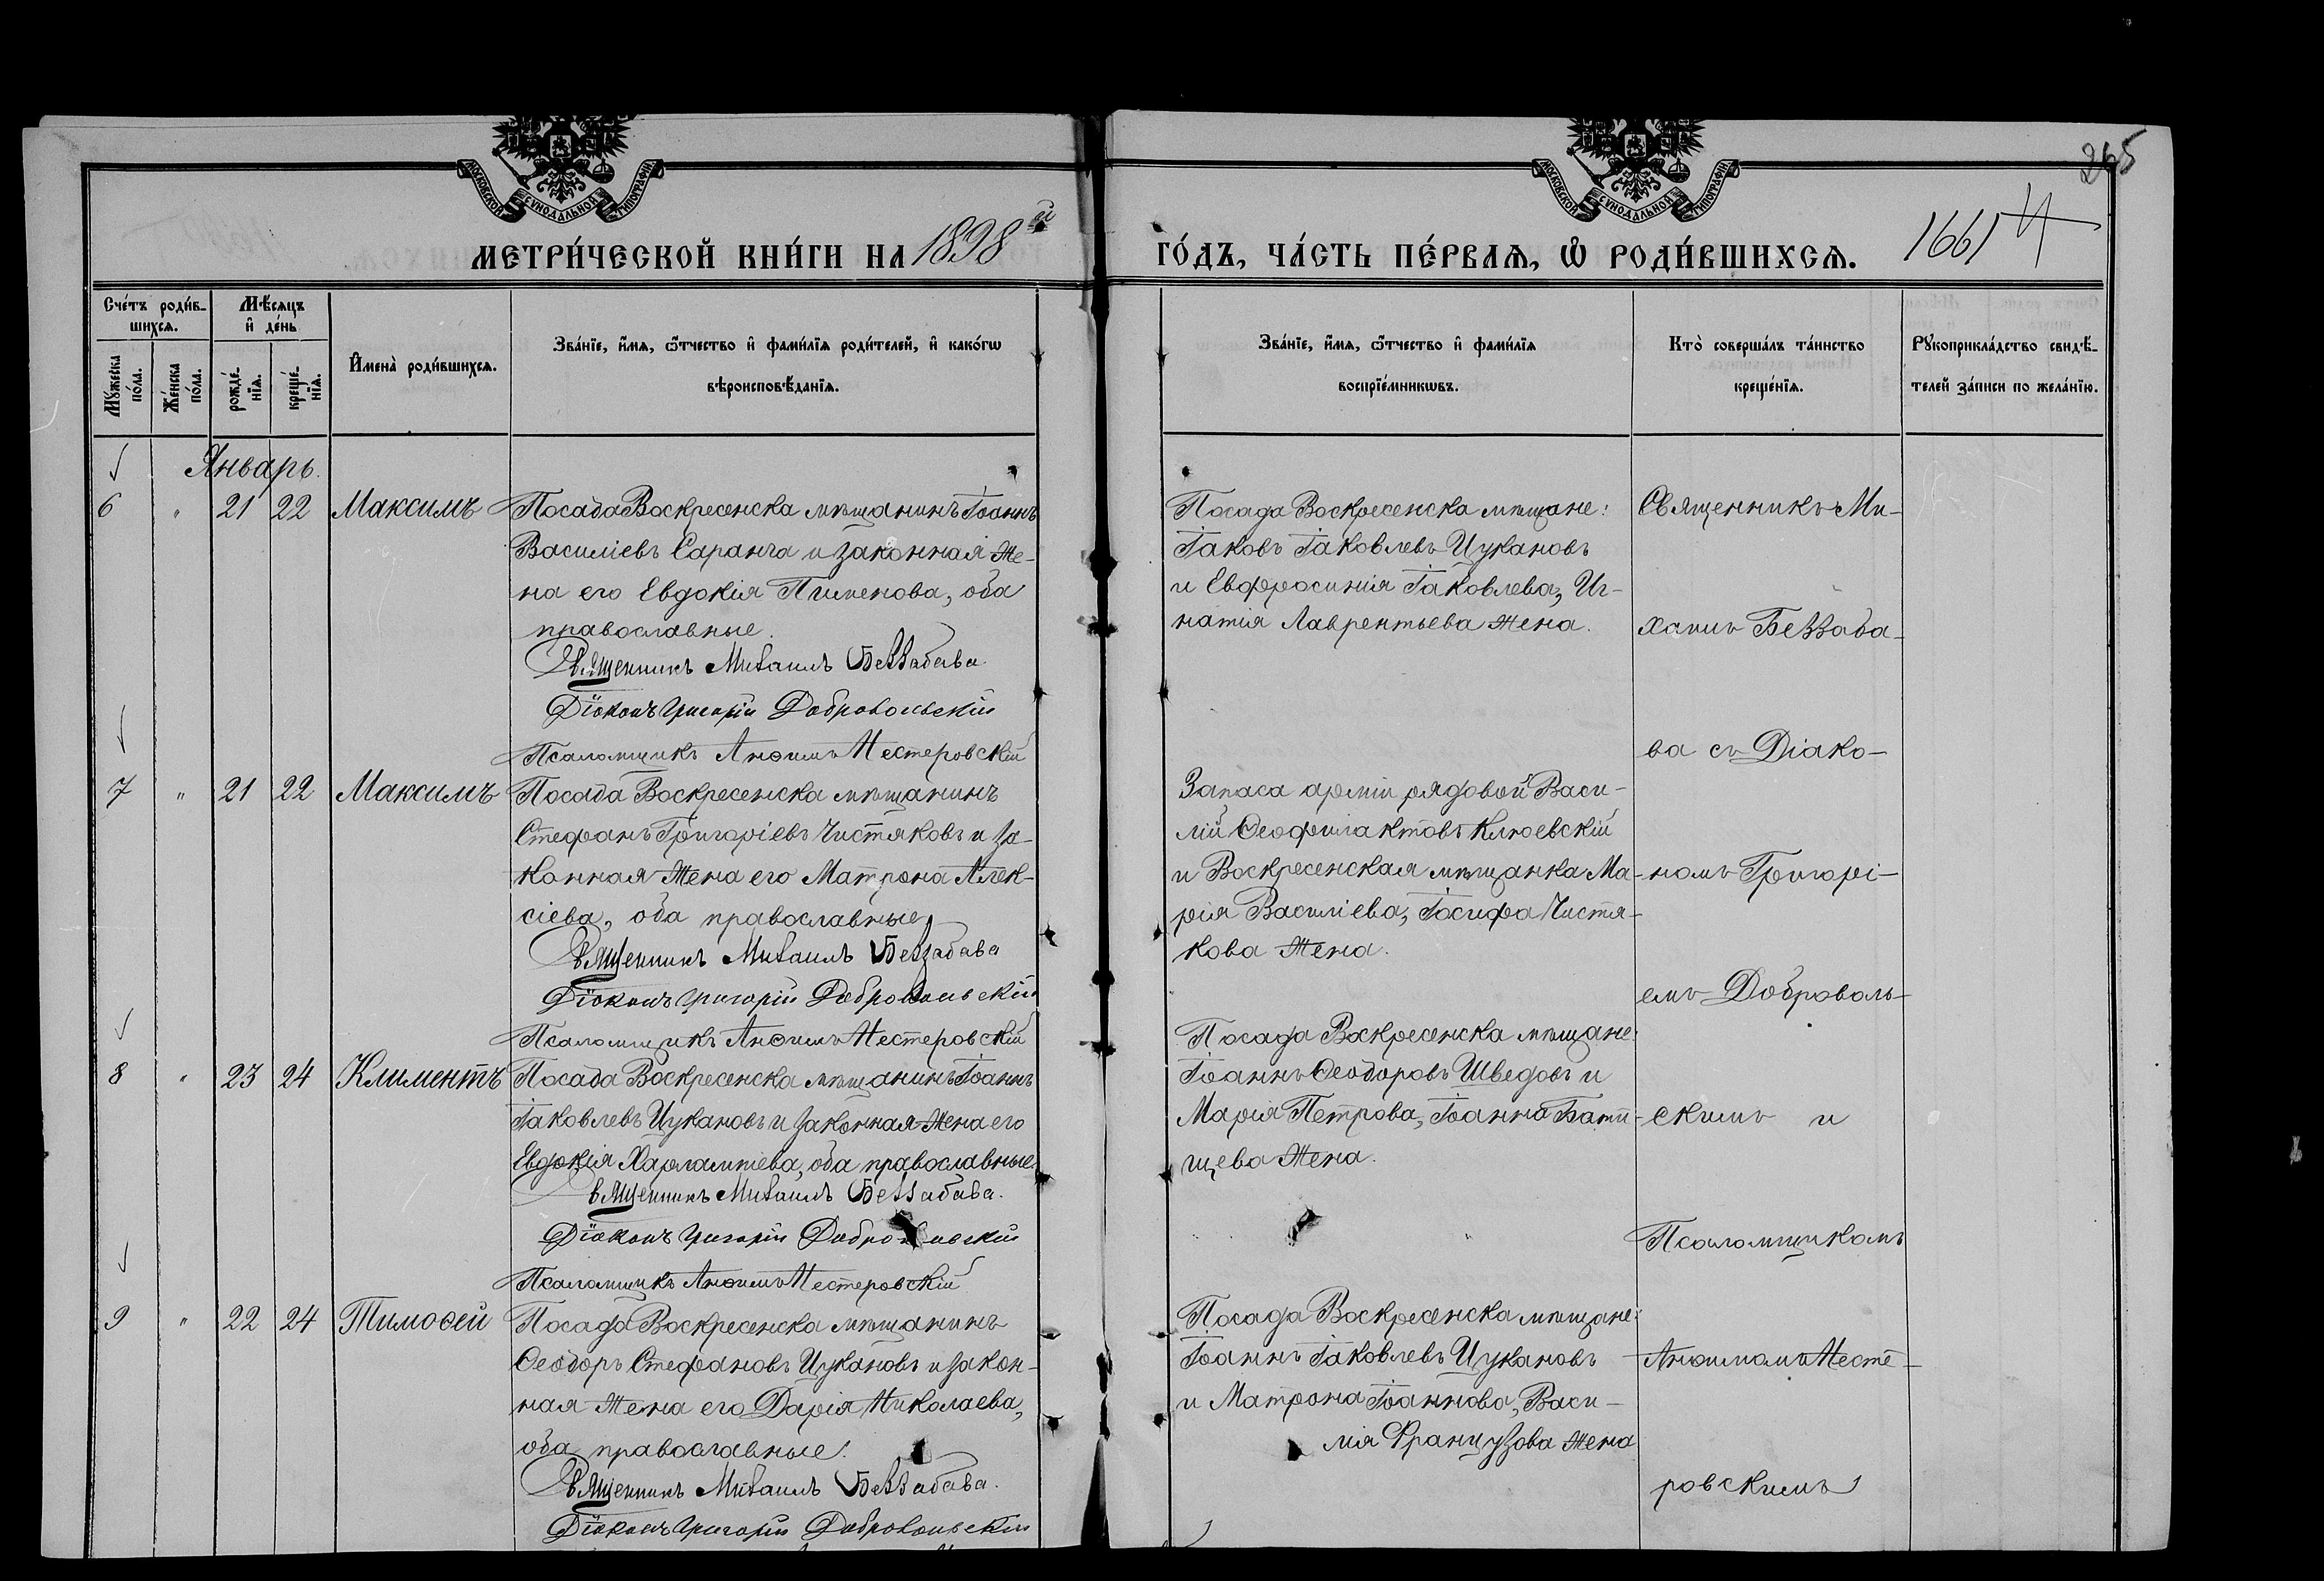 265
МОСКОВСКОЙ СѴНОДАЛЬНОЙ ТИПОГРАФІИ
МОСКОВСКОЙ СѴНОДАЛЬНОЙ ТИПОГРАФІИ
МЕТРИ́ЧЕСКОЙ КНИ́ГИ НА 1898й ГО́ДЪ, ЧА́СТЬ ПЕ́РВАѦ, Ѽ РОДИ́ВШИХСѦ. 1661
Сче́тъ роди́в-
шихсѧ.
Мѣ́сѧцъ
и҆ де́нь
Мꙋ́жеска по́ла.
Же́нска по́ла.
рожде́-нїѧ.
креще́-нїѧ.
И҆мена̀ роди́вшихсѧ.
Зва́нїе, и҆́мѧ, ѻ҆́тчество и҆ фами́лїѧ роди́телей, и҆ како́гѡ
вѣроисповѣ́данїѧ.
Зва́нїе, и҆́мѧ, ѻ҆́тчество и҆ фами́лїѧ
воспрїе́мникѡвъ.
Кто̀ соверша́лъ та́инство
креще́нїѧ.
Рꙋкоприкла́дство свидѣ́-
телей за́писи по жела́нїю.
Январь.
6 " 21 22 Максимъ
Посада Воскресенска мѣщанинъ Іоаннъ
Василіевъ Саранча и законная же-
на его Евдокія Пименова, оба
православные.
Священникъ Михаилъ Беззабава.
Діаконъ Григорій Добровольскій
Псаломщикъ Анѳимъ Нестеровскій
Посада Воскресенска мѣщане:
Іаковъ Іаковлевъ Цукановъ
и Евфросинія Іаковлева, Иг-
натія Лаврентьева жена.
7 " 21 22 Максимъ
Посада Воскресенска мѣщанинъ
Стефанъ Григоріевъ Чистяковъ и за-
конная жена его Матрона Алек-
сіева, оба православные
Священникъ Михаилъ Беззабава
Діаконъ Григорій Добровольскій
Псаломщикъ Анѳимъ Нестеровскій
Запаса арміи рядовой Васи-
лій Ѳеофилактовъ Клюевскій
и Воскресенская мѣщанка Ма-
рія Василіева, Іосифа Чистя-
кова жена.
8 " 23 24 Климентъ
Посада Воскресенска мѣщанинъ Іоаннъ
Іаковлевъ Цукановъ и законная жена его
Евдокія Харлампіева, оба православные.
Священникъ Михаилъ Беззабава.
Діаконъ Григорій Добровольскій
Псаломщикъ Анѳимъ Нестеровскій
Посада Воскресенска мѣщане:
Іоаннъ Ѳеодоровъ Шведовъ и
Марія Петрова, Іоанна Бати-
щева жена.
9 " 22 24 Тимоѳей
Посада Воскресенска мѣщанинъ
Ѳеодоръ Стефановъ Цукановъ и закон-
ная жена его Дарія Николаева,
оба православные.
Священникъ Михаилъ Беззабава.
Діаконъ Григорій Добровольскій
Посада Воскресенска мѣщане:
Іоаннъ Іаковлевъ Цукановъ
и Матрона Іоаннова, Васи-
лія Французова жена
Священникъ Ми-
хаилъ Беззаба-
ва съ Діако-
номъ Григорі-
емъ Доброволь-
скимъ и
Псаломщикомъ
Анѳимомъ Несте-
ровскимъ